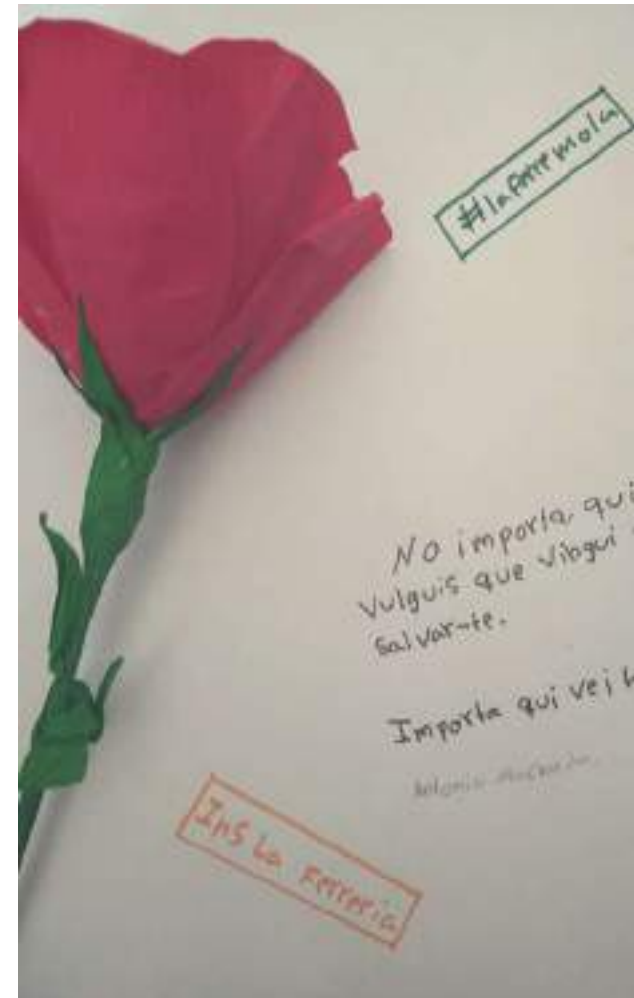 No importa qui
vulguis que vingui
salvar-te.
Importa qui vei
Ins La Ferreria